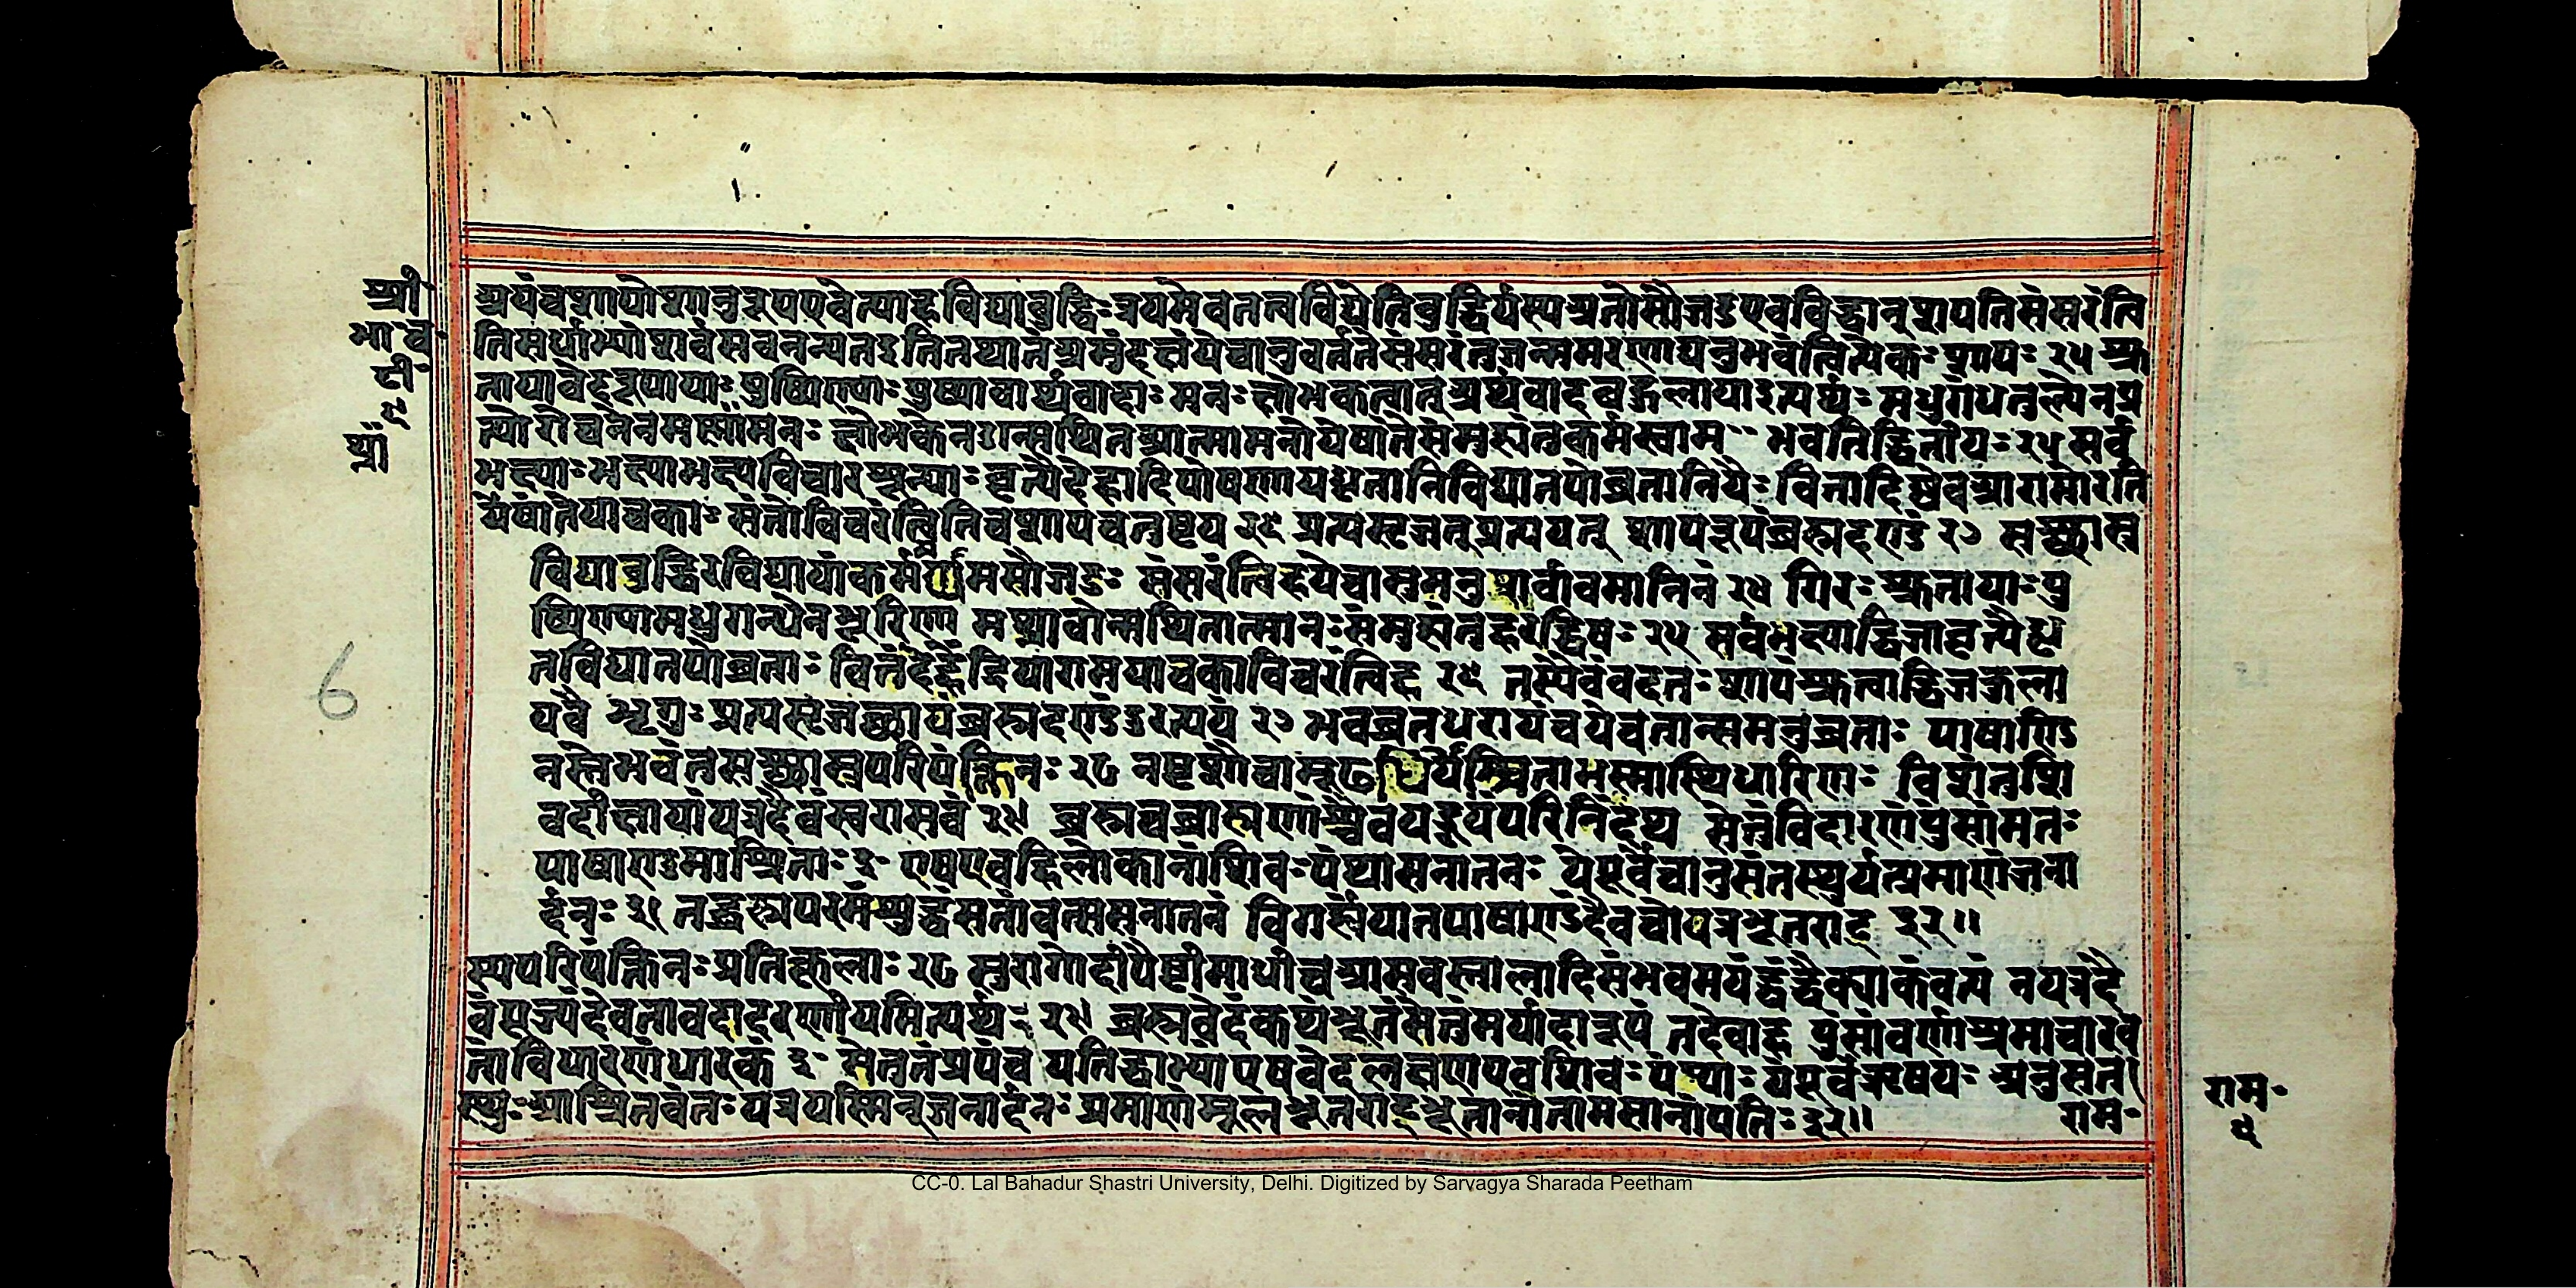 श्री
भा॰च॰
टी॰
च॰
अयंचशापोशानुरूपएवेत्याहविद्याबुद्धिःत्रयमेवतत्वविद्येतिबुद्धिर्यस्यअतोसौजडएवविद्वान्शपतिसंसरंत्वि
तिसर्पाभ्यांशर्वंसचनन्यतइतितथातंअमुंदक्षंयेचानुवर्तंतेसंसरंतुजन्ममरणाद्यनुभवंत्वित्येकःशापः २५ श्रु
तायावेदरूपायाःपुष्पिण्याःपुष्पाण्यर्थवादाःमनःक्षोभकत्वात्अर्थवादबहुलायाइत्यर्थःमधुगंधतुल्येनप्र
त्यारोचनेनमथ्नामनःक्षोभकेनउन्मथितआत्मामनोयेषांतेसंमुह्यंतुकर्मस्वाम॰॰ भवतिद्वितीयः२५ सर्व
भक्ष्याःभक्ष्याभक्ष्यविचारशून्याःवृत्त्यैदेहादिपोषणायधृतानिविद्यातपोव्रतानियैःवित्तादिष्वेवआरामोरति
र्येषांतेयाचकाःसंतोविचरंत्वितिचशापचतुष्टय २६ प्रत्यसृजत्प्रत्ययत् शापरूपंब्रह्मदण्डं २७ सच्छास्त्र
विद्याबुद्धिरविद्यायांकर्ममय्यामसौजडः संसरंत्विहयेचामुमनुशर्वावमानिनं २४ गिरःश्रुतायाःपु
ष्पिण्यामधुगन्धेनभूरिणा मथ्नाचोन्मथितात्मानःसंमुह्यंतुहरद्विषः२५ सर्वभक्ष्याद्विजावृत्त्यैधृ
तविद्यातपोव्रताः वित्तदेहेंद्रियारामयाचकाविचरंत्विह २६ तस्यैवंवदतःशापंश्रुत्वाद्विजकुला
यवै भृगुःप्रत्यसृजच्छापंब्रह्मदण्डंदुरत्ययं २७ भवव्रतधरायेचयेचतान्समनुव्रताः पाषाण्डि
नस्तेभवंतुसच्छास्त्रपरिपंथिनः २८ नष्टशौचामूढधियोजटाभस्मास्थिधारिणः विशंतुशि
वदीक्षायांयत्रदैवंसुरासवं २९ ब्रह्मचब्राह्मणांश्चैवयद्यूयंपरिनिंदथ सेतुंविदारणंपुंसामतः
पाषाण्डमाश्रिताः३॰ एषएवहिलोकानांशिवःपंथाःसनातनः यंपूर्वेचानुसंतस्थुर्यत्प्रमाणंजना
र्दनः३१ तद्ब्रह्मपरमंशुद्धंसतांवर्त्मसनातनं विगर्ह्यंयातपाषाण्डंदैवंवोयत्रभूतराट् ३२॥
स्यपरिपंथिनःप्रतिकूलाः२८ सुरागौडीपैष्टीमाध्वीचआसवस्तालादिसंभवमयंद्वंद्वैक्याकंवत्यं नयत्रदै
वंपूज्यंदेवतावदादरणीयमित्यर्थः २९ ब्रह्मवेदंकथंभूतंसेतुंमर्यादारूपं तदेवाह पुंसांवर्णाश्रमाचारव
तांविधारणंधारकं ३॰ सेतुत्वंप्रपंच यतिद्वाभ्यांएषवेदलक्षणएवशिवःपंथाःयंपूर्वेऋषयः अनुसंत
स्थुःआश्रितवंतःयत्रयस्मिन्जनार्दनःप्रमाणंमूलंभूतराट्भूतानांतामसानांपतिः३२॥
राम॰
राम॰
6
CC-0. Lal Bahadur Shastri University, Delhi. Digitized by Sarvagya Sharada Peetham